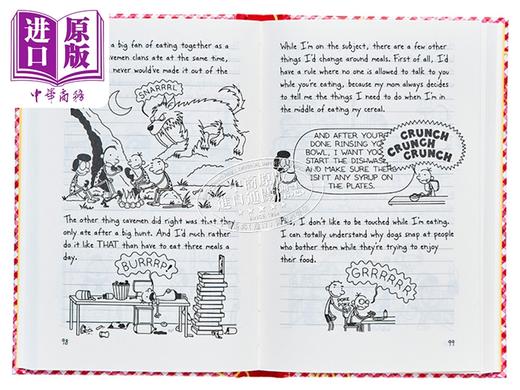 进口
原版
中華商務
a big fan of eating together as a
cavemen clans ate at the same time,
never would've made it out of the
SNARRRL
The other thing cavemen did right was that they
only ate after a big hunt. And I'd much rather
do it like THAT than have to eat three meals a
day.
BURRRRP!
98
While I'm on the subject, there are a few other
things I'd change around meals. First of all, I'd
have a rule where no one is allowed to talk to you
while you're eating, because my mom always decides
to tell me the things I need to do when I'm in
the middle of eating my cereal.
AND AFTER YOU'RE
DONE RINSING YOUR
BOWL, I WANT YOU
START THE DISHWAS
AND MAKE SURE THER
ISN'T ANY SYRUP ON
THE PLATES.
CRUNCH
CRUNCH
CRUNCH
Plus, I don't like to be touched while I'm eating.
I can totally understand why dogs snap at people
who bother them while they're trying to enjoy
their food.
GRRRRRR
POKE
POKE
99